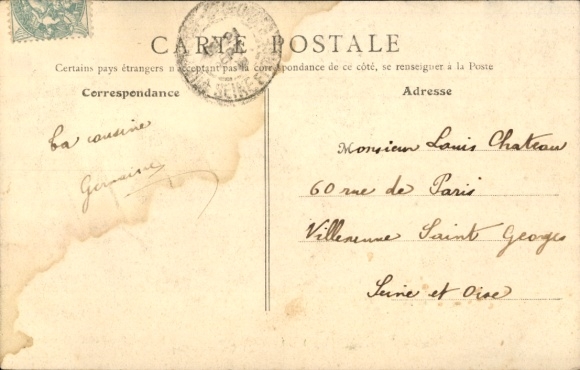 CARTE POSTALE
Certains pays étrangers n'acceptant pas la correspondance de ce côté, se renseigner à la Poste
Correspondance
Adresse
Ta cousine
Germaine
Monsieur Louis Chateau
60 rue de Paris
Villeneuve Saint Georges
Seine et Oise